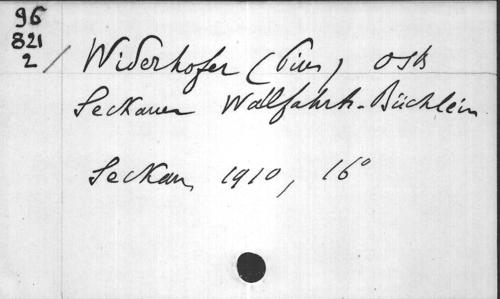 96
821
2 / Widerhofer (Pius) OSB
Seckauer Wallfahrts-Büchlein
Seckau, 1910, 16°